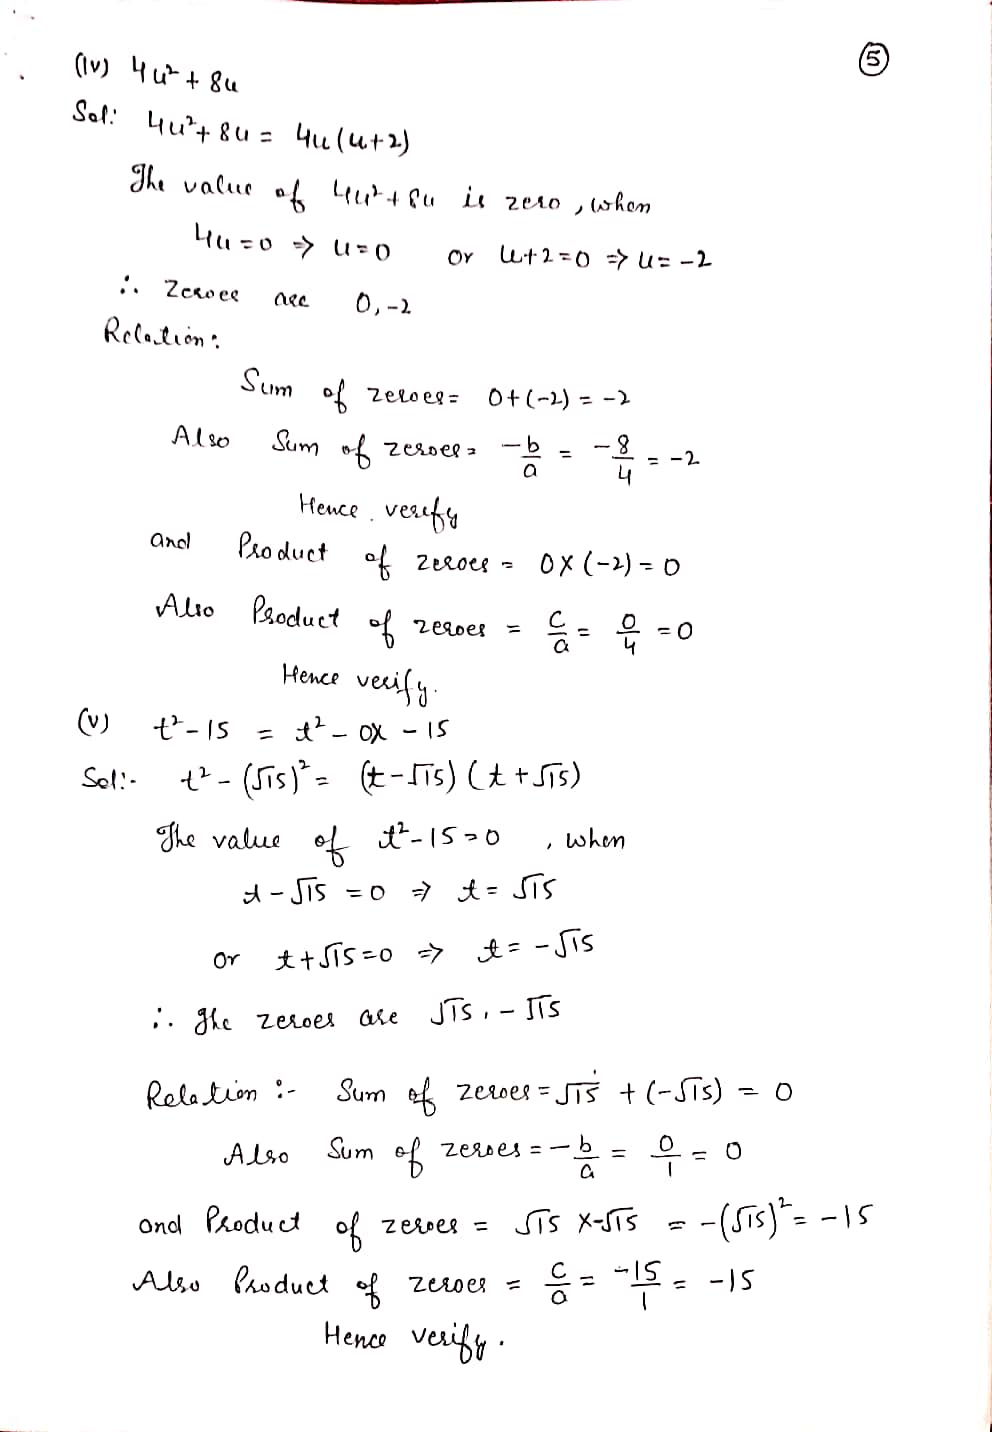 ⑤
(iv) 4u² + 8u
Sol: 4u² + 8u = 4u(u+2)
The value of 4u² + 8u is zero, when
4u = 0 ⇒ u = 0 or u+2 = 0 ⇒ u = -2
∴ Zeroes are 0, -2
Relation:
Sum of zeroes = 0+(-2) = -2
Also Sum of zeroes = -b/a = -8/4 = -2
Hence verify
and Product of zeroes = 0×(-2) = 0
Also Product of zeroes = c/a = 0/4 = 0
Hence verify.
(v) t² - 15 = t² - 0x - 15
Sol:- t² - (√15)² = (t-√15)(t+√15)
The value of t² - 15 = 0, when
t - √15 = 0 ⇒ t = √15
or t + √15 = 0 ⇒ t = -√15
∴ The zeroes are √15, -√15
Relation :- Sum of zeroes = √15 + (-√15) = 0
Also Sum of zeroes = -b/a = 0/1 = 0
and Product of zeroes = √15 × -√15 = -(√15)² = -15
Also Product of zeroes = c/a = -15/1 = -15
Hence verify.